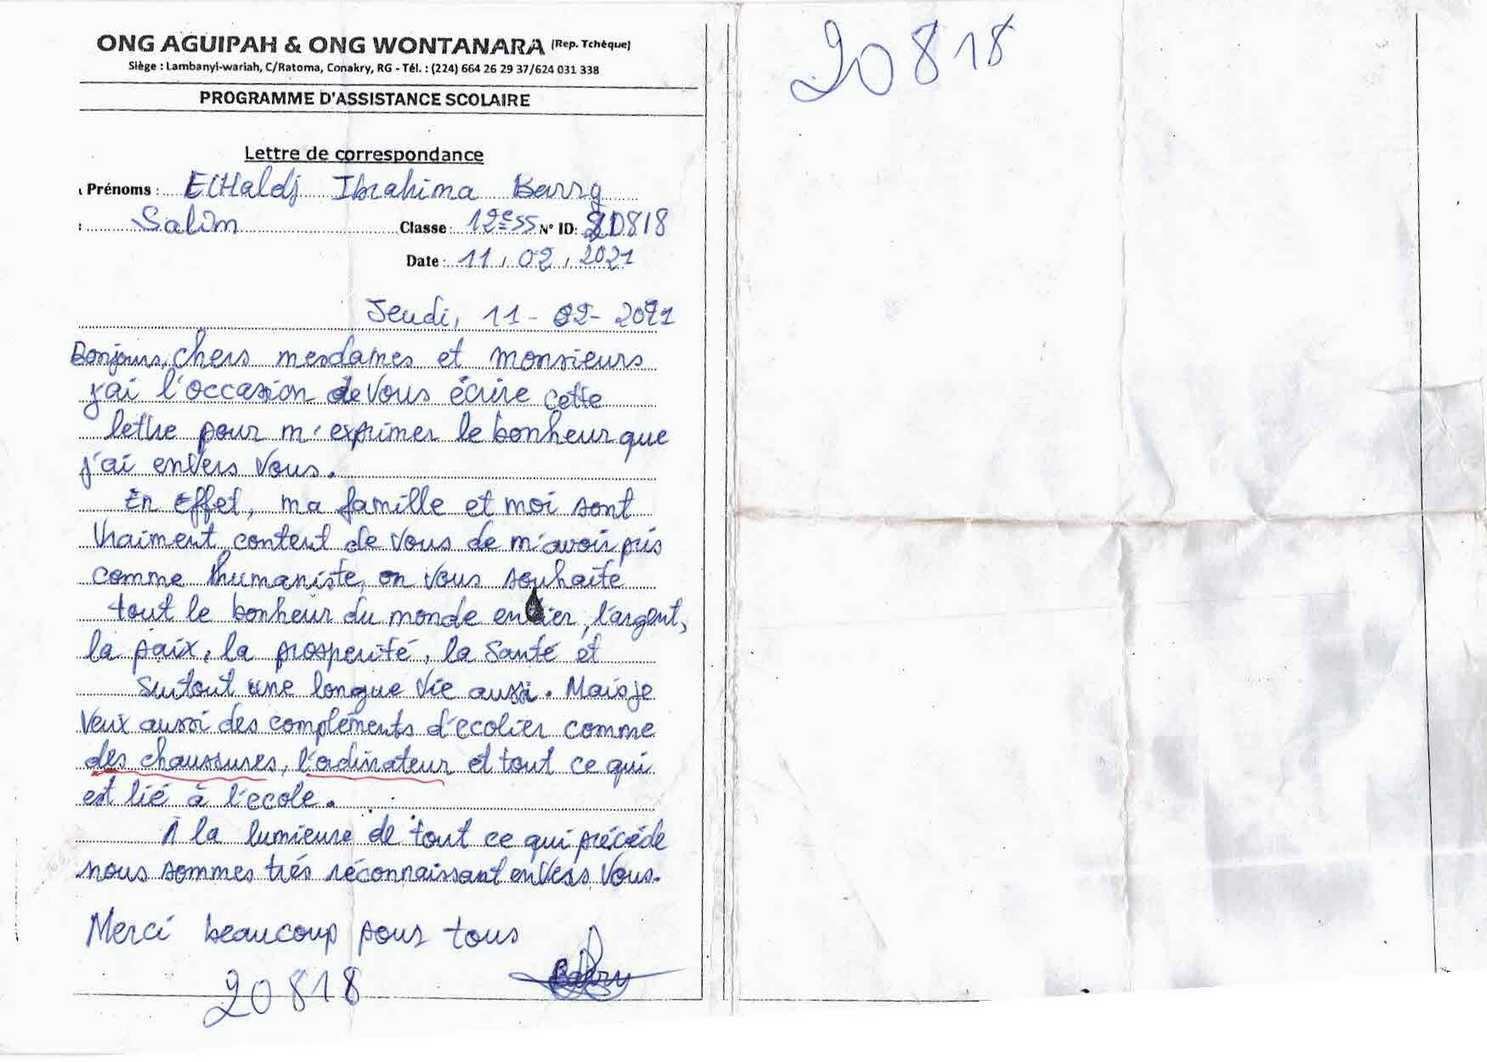 ONG AGUIPAH & ONG WONTANARA (Rep. Tchèque)
Siège : Lambanyi-wariah, C/Ratoma, Conakry, RG - Tél. : (224) 664 26 29 37/624 031 338
PROGRAMME D'ASSISTANCE SCOLAIRE
Lettre de correspondance
Prénoms : ElHaldj Ibrahima Barry
: Salim Classe : 12e SS N° ID: 20818
Date : 11 / 02 / 2021
Jeudi, 11-02-2021
Bonjours, chers mesdames et monsieurs
j'ai l'occasion de vous écrire cette
lettre pour m'exprimer le bonheur que
j'ai envers vous.
En effet, ma famille et moi sont
vraiment content de vous de m'avoir pris
comme humaniste, on vous souhaite
tout le bonheur du monde entier, l'argent,
la paix, la prosperité, la santé et
surtout une longue vie aussi. Mais je
veux aussi des compléments d'ecolier comme
des chaussures, l'ordinateur et tout ce qui
est lié à l'ecole.
A la lumieuse de tout ce qui précéde
nous sommes trés réconnaissant envers vous.
Merci beaucoup pour tous
Barry
20818
20818